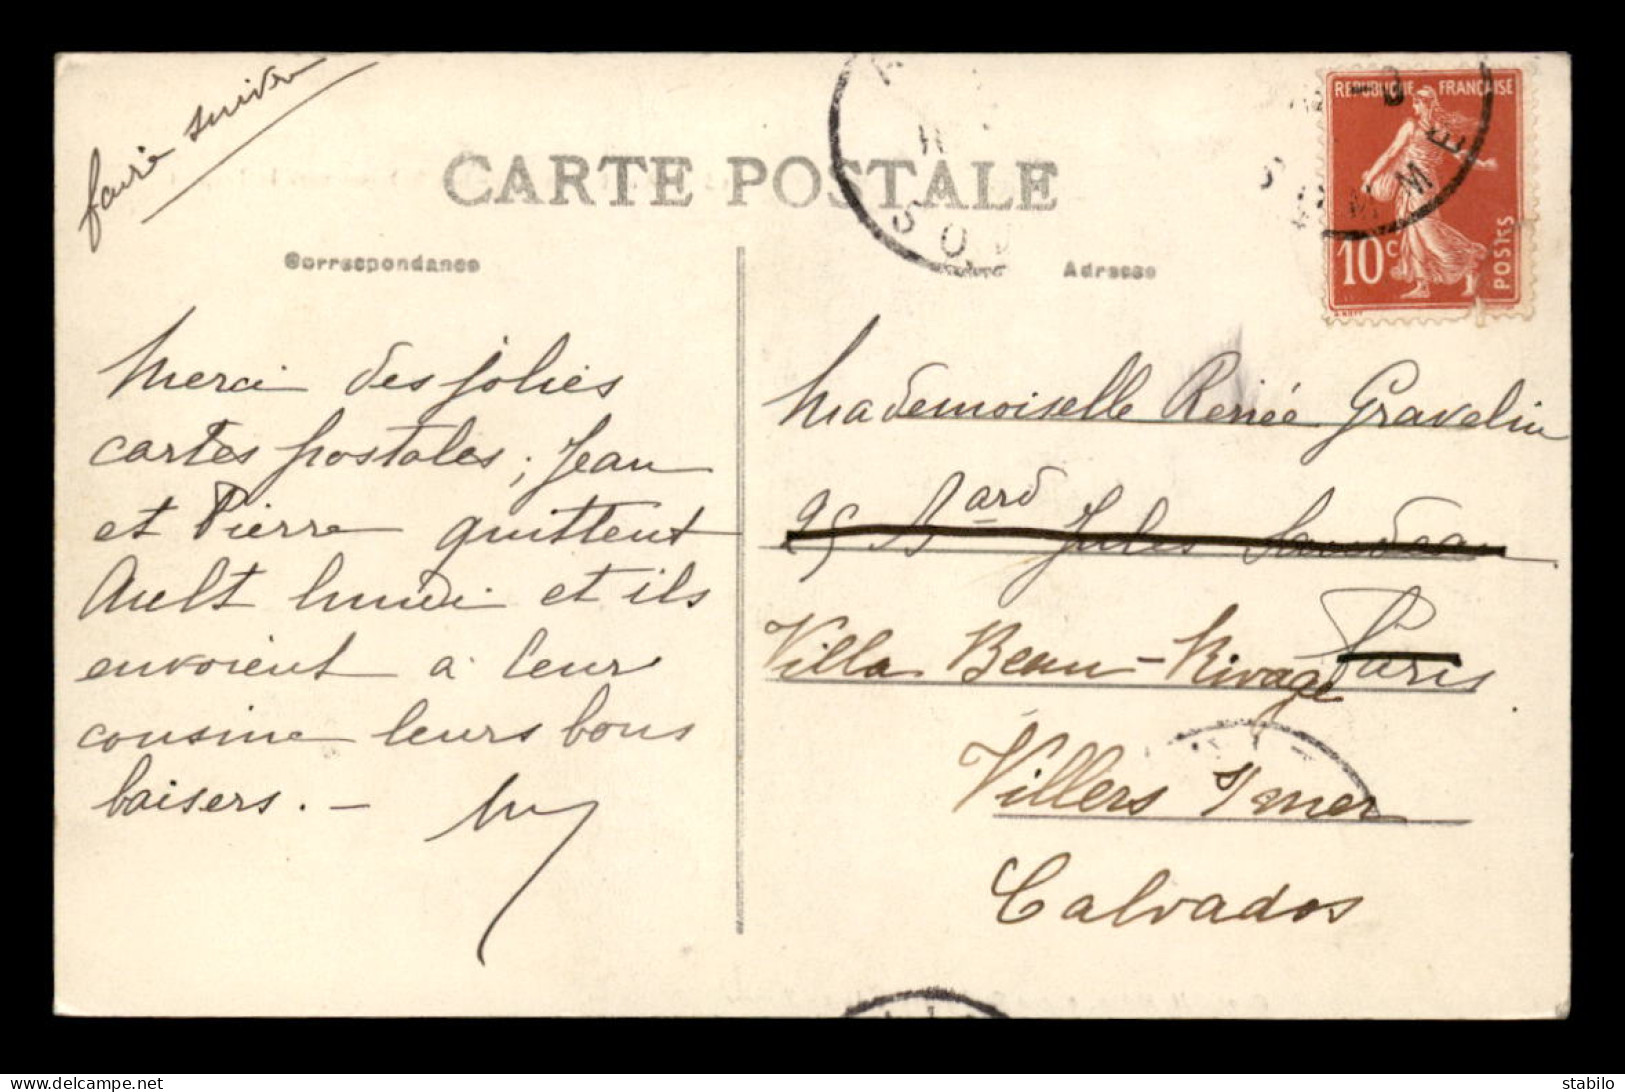 faire suivre
CARTE POSTALE
Correspondance
Adresse
REPUBLIQUE FRANÇAISE
10 c
POSTES
SOMME
SOM
Merci des jolies
cartes postales ; Jean
et Pierre quittent
Ault lundi et ils
envoient à leur
cousine leurs bons
baisers. -
Mademoiselle Renée Gravelin
25 Bard Jules Sandeau
Paris
Villa Beau-Rivage
Villers s/mer
Calvados
delcampe.net
stabilo